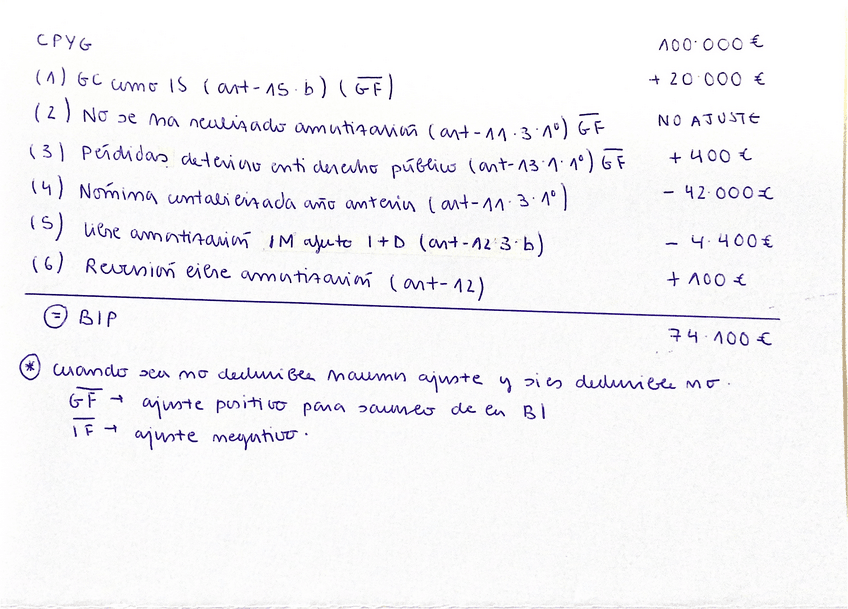 CPYG 100.000 €
(1) GC como IS (art-15.b) (G̅F̅) + 20.000 €
(2) No se ha realizado amortización (art-11.3.1º) G̅F̅ NO AJUSTE
(3) Pérdidas deterioro cnti derecho público (art-13.1.1º) G̅F̅ + 400 €
(4) Nómina contabilizada año anterior (art-11.3.1º) - 42.000 €
(5) libre amortización IM afecto I+D (art-12.3.b) - 4.400 €
(6) Reversión libre amortización (art-12) + 100 €
(=) BIP 74.100 €
(*) cuando sea no deducible hacemos ajuste y si es deducible no.
G̅F̅ → ajuste positivo para sacarlo de la BI
I̅F̅ → ajuste negativo.